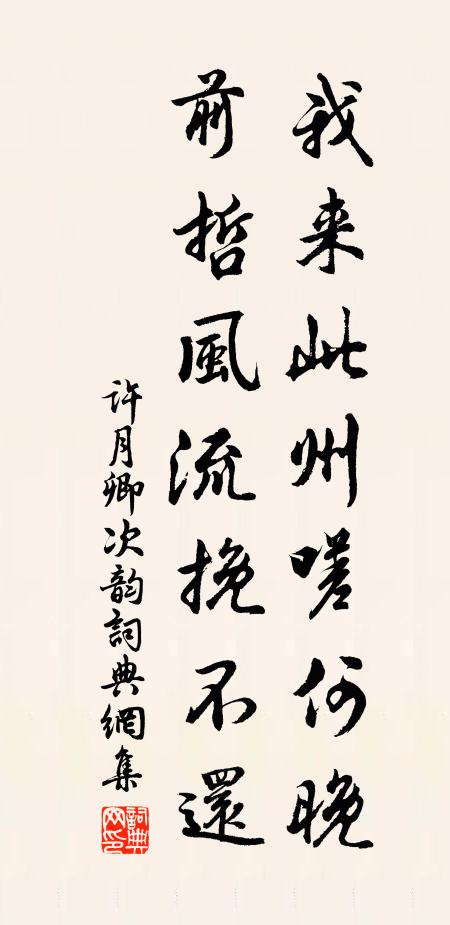 我来此州嗟何晚
前哲風流挽不還
許月卿次韵詞典網集
詞典网印